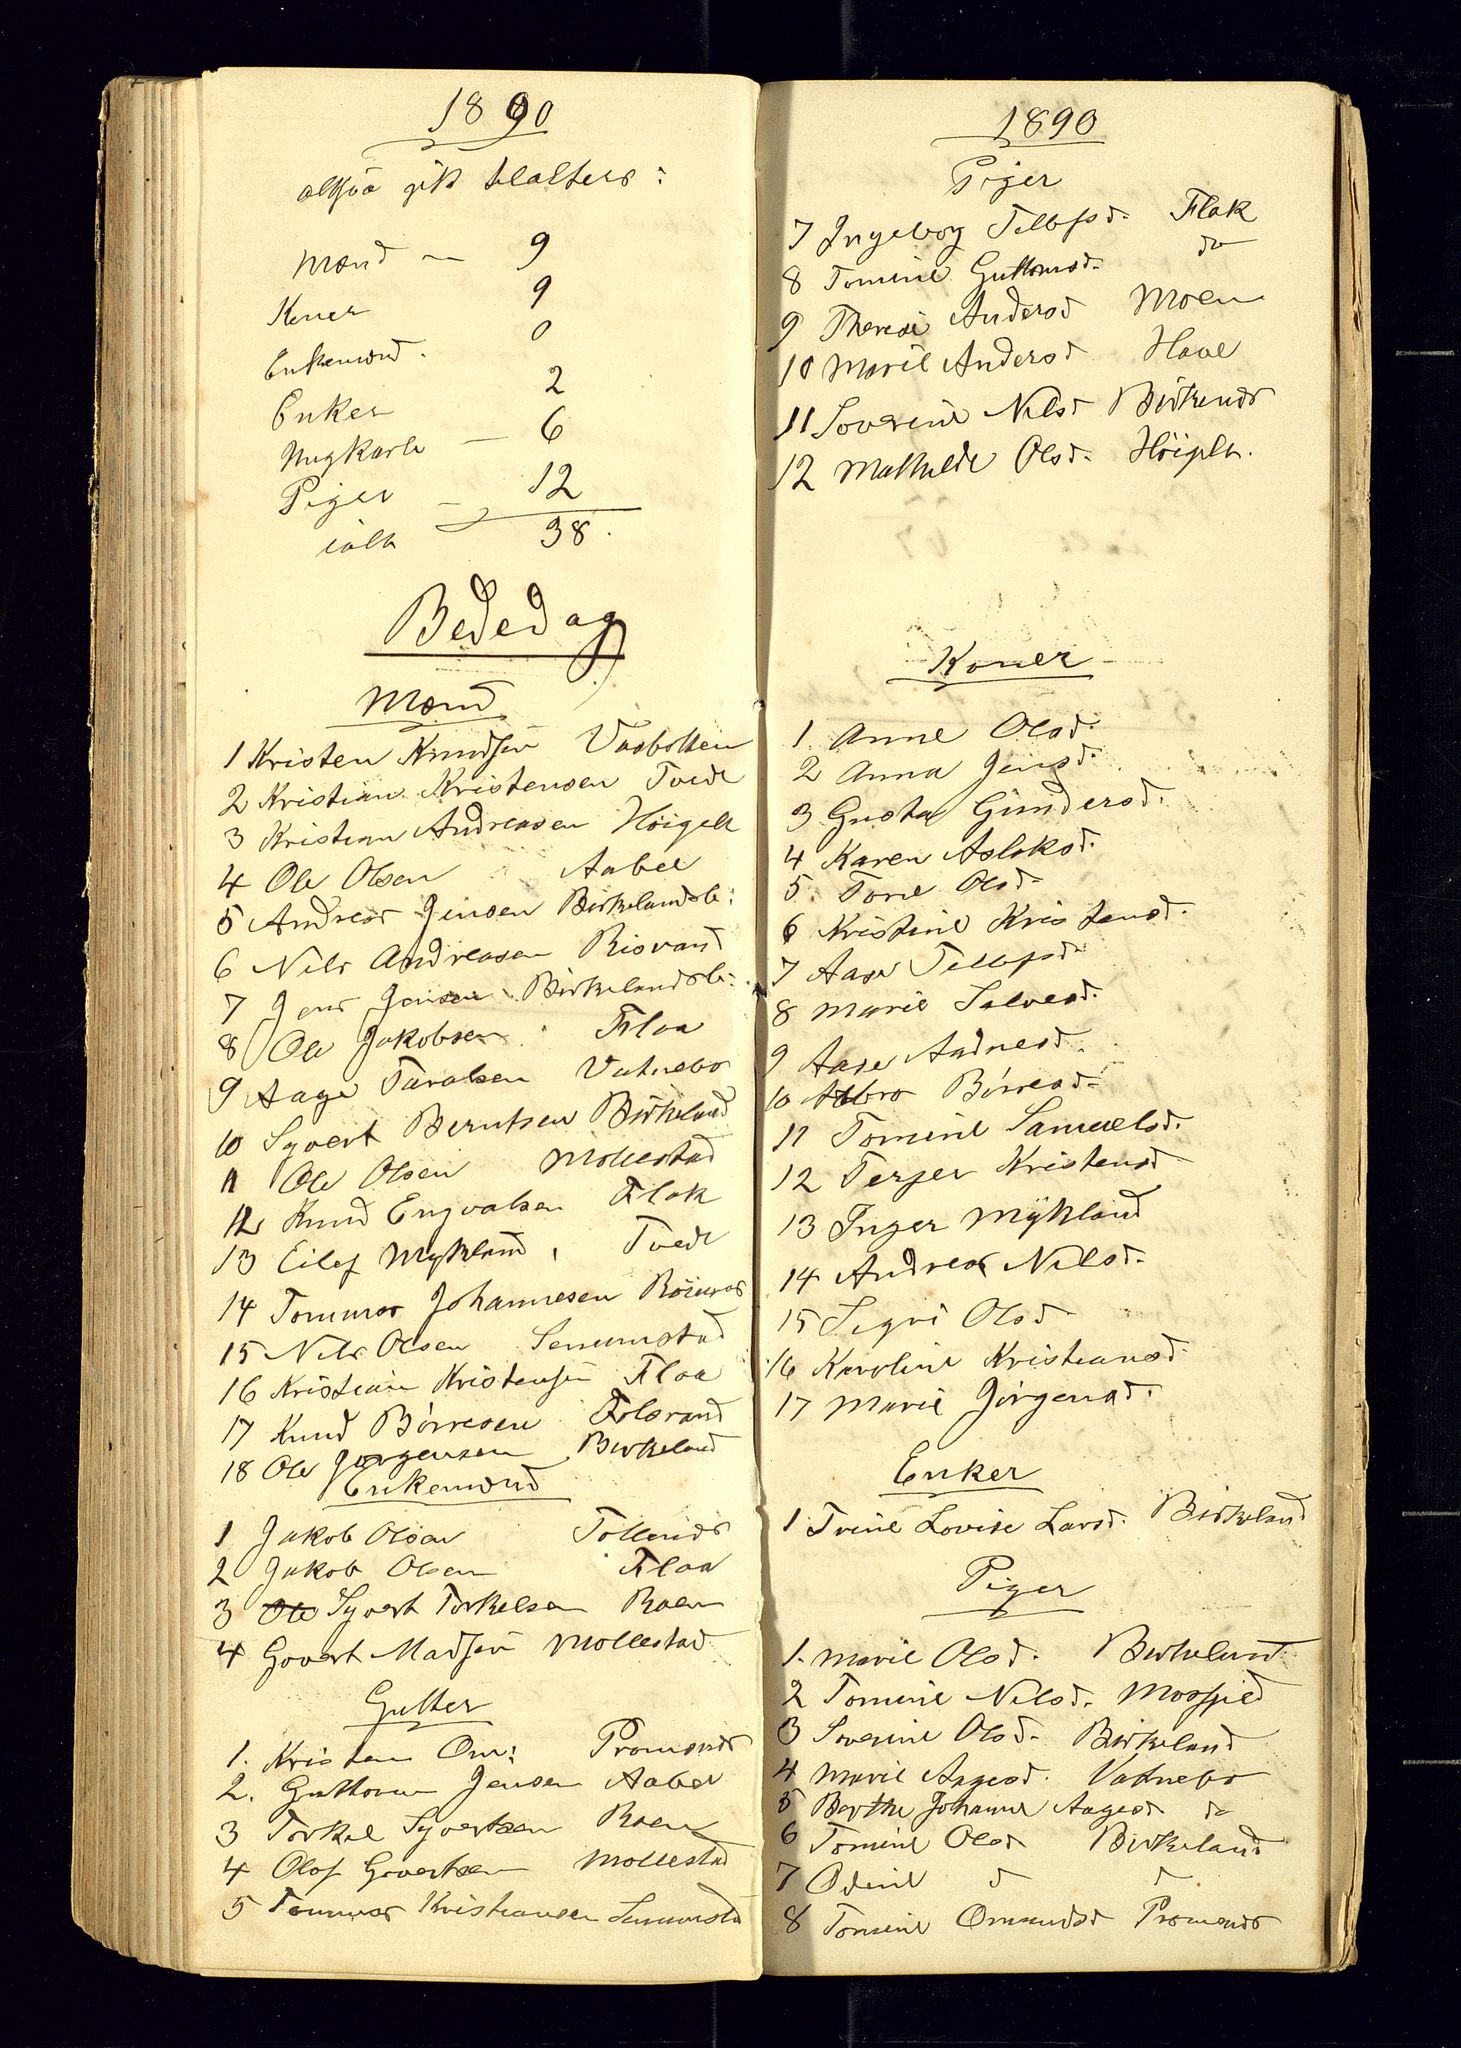 1890
altsaa gik til alters:
Mænd — 9
Koner 9
Enkemænd. 0
Enker 2
Ungkarle — 6
Piger — 12
ialt 38.
Bededag
Mænd
1 Kristen Knudsen Vasbotten
2 Kristian Kristensen Tvede
3 Kristian Andreasen Höigelt
4 Ole Olsen Aabel
5 Andreas Jensen Birkelandsli:
6 Nils Andreasen Risvand
7 Jens Jensen Birkelandsli:
8 Ole Jakobsen Flaa
9 Aage Taralsen Vatnebo
10 Syvert Berntsen Birkeland
11 Ole Olsen Mollestad
12 Knud Engvalsen Flak
13 Eilef Mykland, Tvede
14 Tommas Johannesen
15 Nils Olsen Senumstad
16 Kristian Kristensen Flaa
17 Knud Börresen
18 Ole Jørgensen Birkeland
Enkemænd
1 Jakob Olsen
2 Jakob Olsen Flaa
3 Ole Syvert Torkelsen Roen
4 Govert Madsen Mollestad
Gutter
1. Kristen Om:
2. Guttorm Jensen Aabel
3 Torkel Syvertsen Roen
4 Olaf Govertsen Mollestad
5 Tommas Kristiansen Senumstad
1890
Piger
7 Ingeborg Tellefsd. Flak
8 Tomine Guttormsd. do
9 Therese Andersd Moen
10 Marie Andersd Have
11 Soverine Nilsd
12 Mathilde Olsd. Höigelt.
Koner
1. Anne Olsd.
2 Anna Jensd.
3 Gusta Gundersd.
4 Karen Aslaksd.
5. Tone Olsd.
6 Kristine Kristensd.
7 Aase Tellefsd
8 Marie Salvesd.
9 Aase Aadnesd.
10 Börresd.
11 Tomine Samuelsd.
12 Terjer Kristensd
13 Inger Mÿkland
14 Andrea Nilsd.
15 Sigri Olsd
16 Karoline Kristiansd.
17 Marie Jörgensd.
Enker
1 Trine Lovise Larsd. Birkeland
Piger
1. Marie Olsd. Birkeland
2 Tomine Nilsd. Mosfjed
3 Soverine Olsd. Birkeland
4 Marie Aagesd. Vatnebo
5 Berthe Johanne Aagesd do
6 Tomine Olsd Birkeland
7 Odine d d
8 Tomine Omundsd